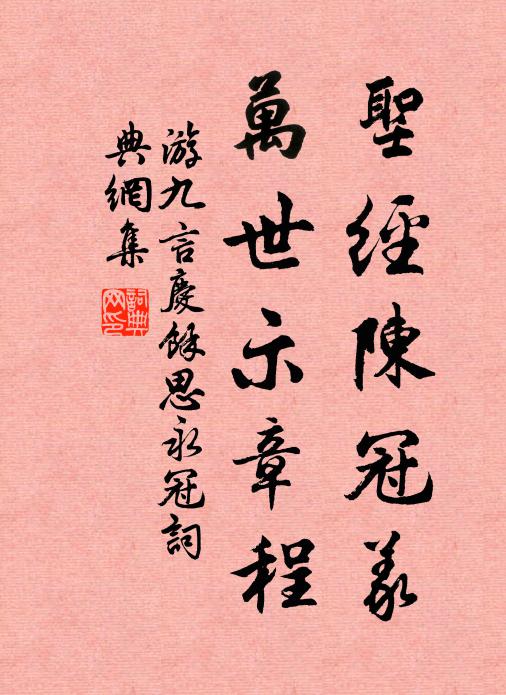 聖經陳冠義
萬世示章程
游九言慶餘思永冠詞
典網集
詞典網印